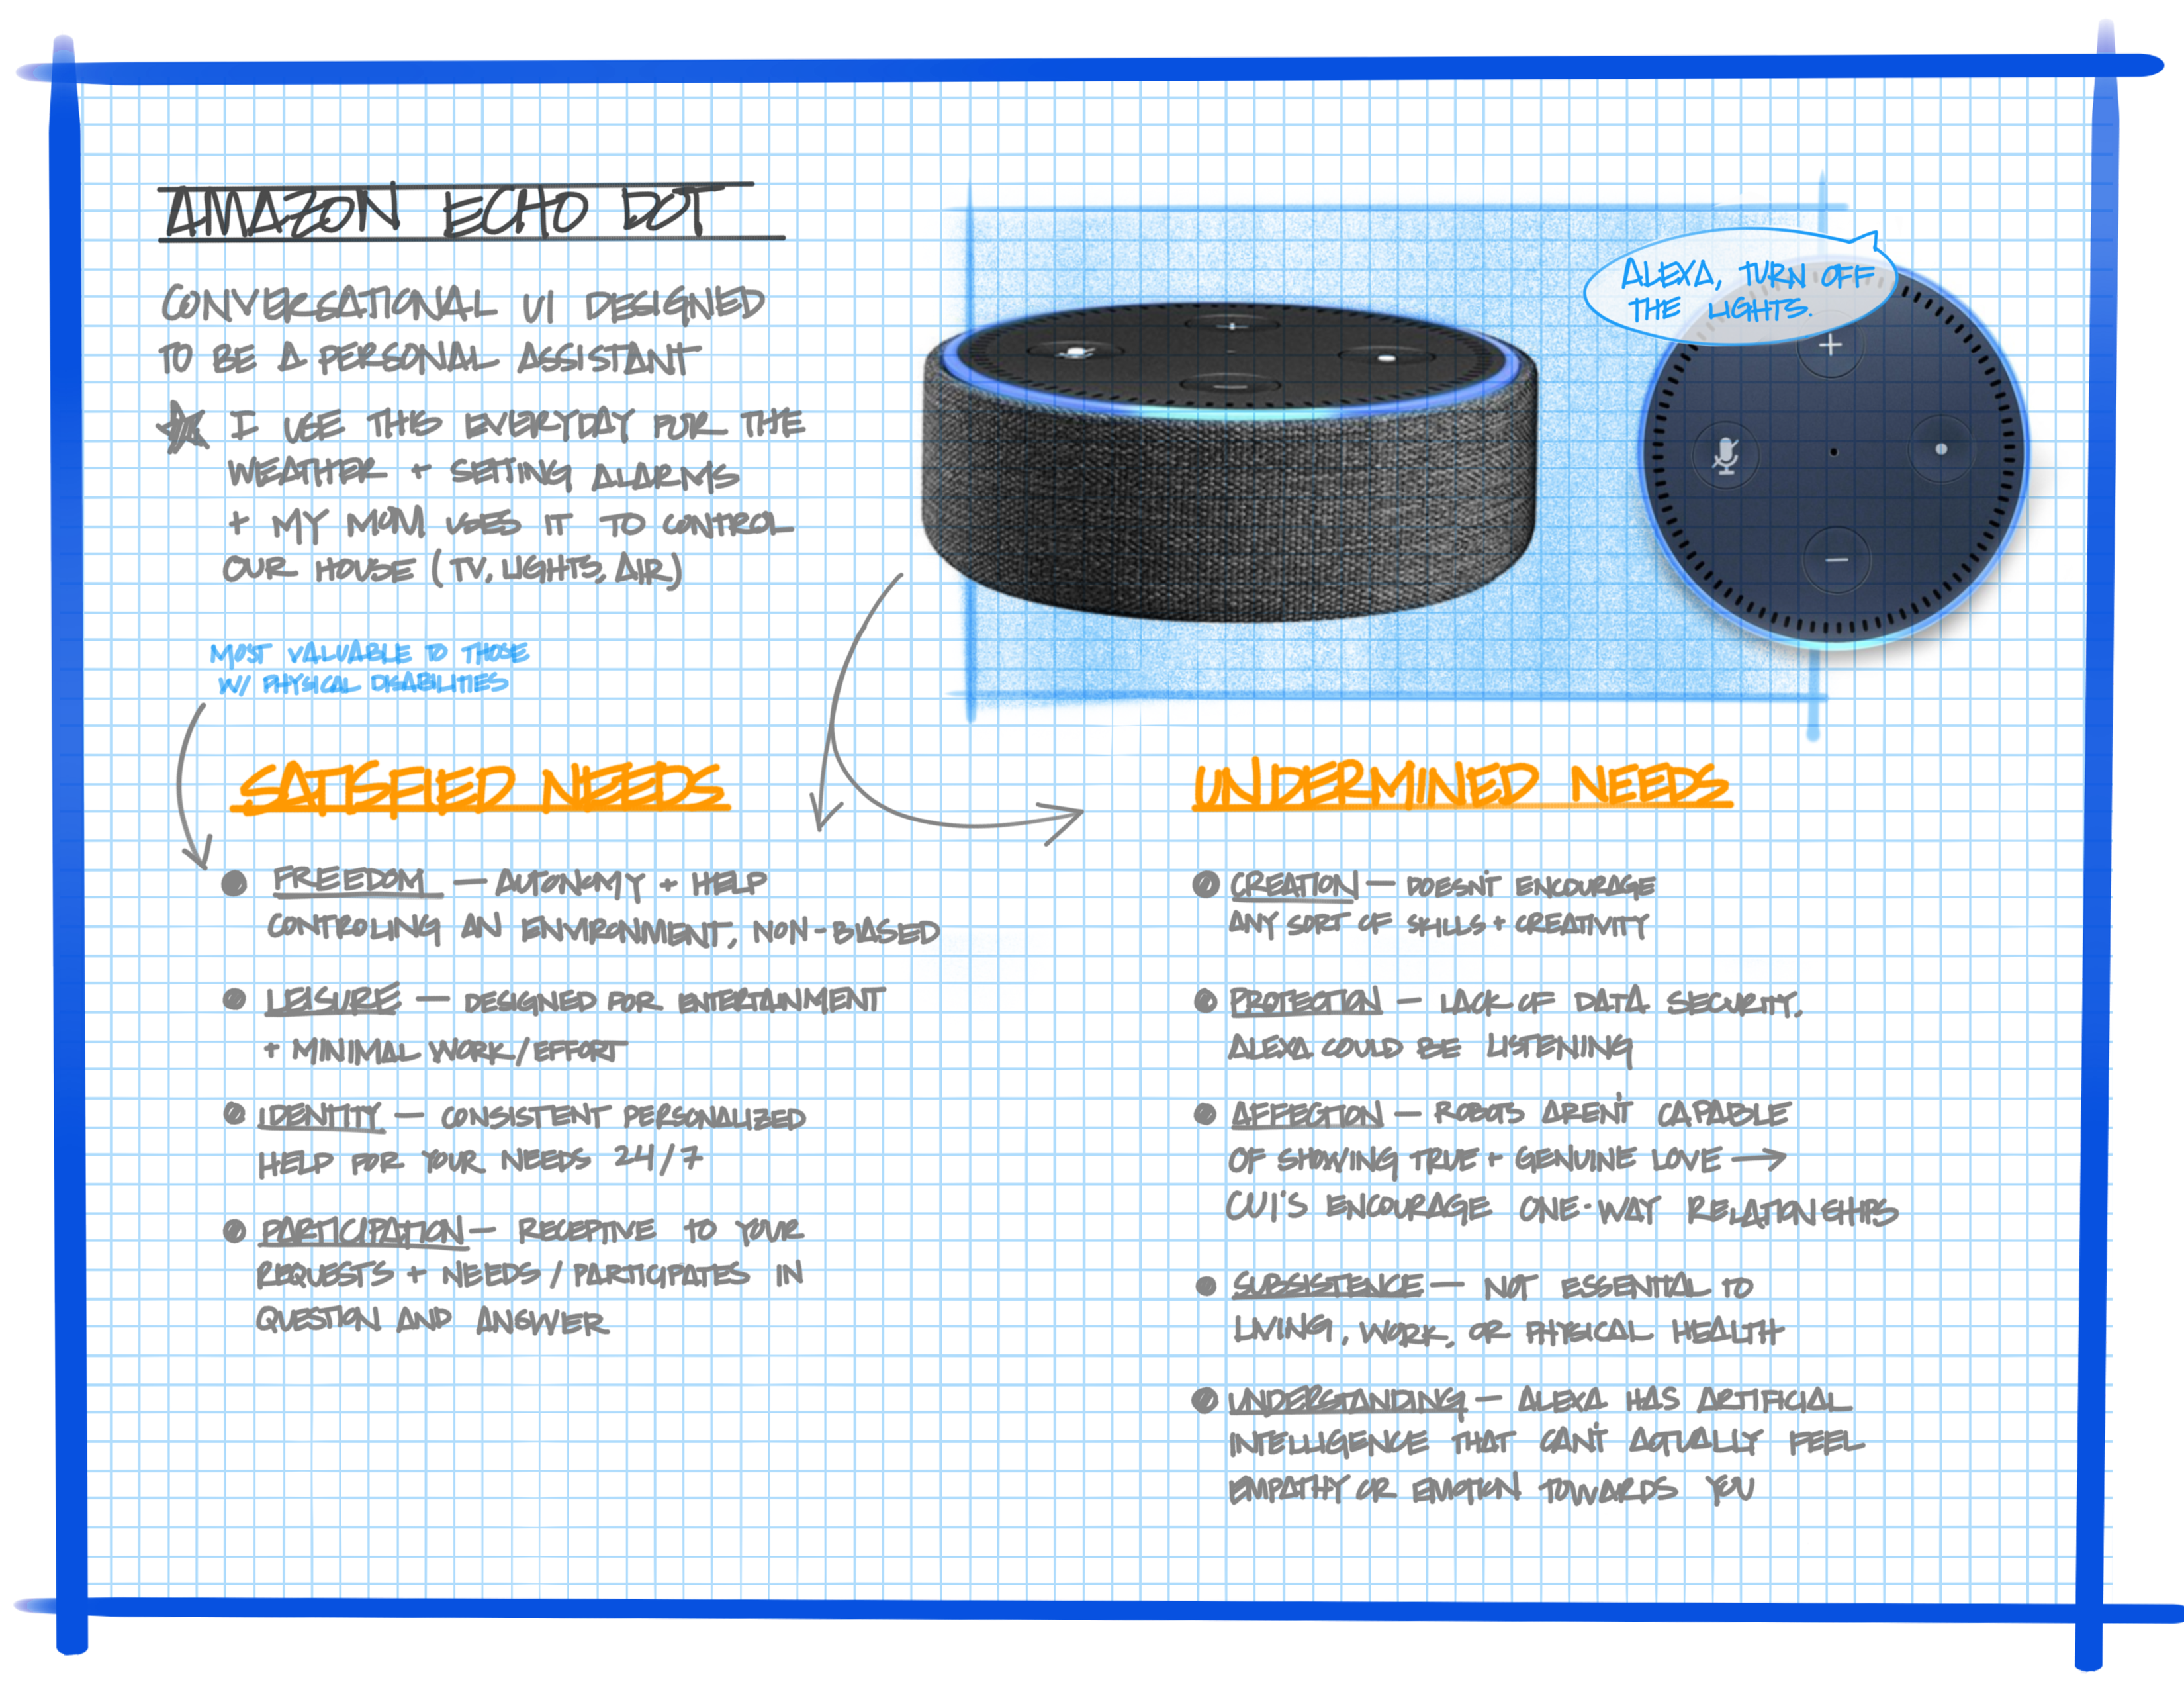 AMAZON ECHO DOT
CONVERSATIONAL UI DESIGNED
TO BE A PERSONAL ASSISTANT
I USE THIS EVERYDAY FOR THE
WEATHER + SETTING ALARMS
+ MY MOM USES IT TO CONTROL
OUR HOUSE (TV, LIGHTS, AIR)
ALEXA, TURN OFF
THE LIGHTS.
MOST VALUABLE TO THOSE
W/ PHYSICAL DISABILITIES
SATISFIED NEEDS
FREEDOM — AUTONOMY + HELP
CONTROLING AN ENVIRONMENT, NON-BIASED
LEISURE — DESIGNED FOR ENTERTAINMENT
+ MINIMAL WORK/EFFORT
IDENTITY — CONSISTENT PERSONALIZED
HELP FOR YOUR NEEDS 24/7
PARTICIPATION — RECEPTIVE TO YOUR
REQUESTS + NEEDS / PARTICIPATES IN
QUESTION AND ANSWER
UNDERMINED NEEDS
CREATION — DOESN'T ENCOURAGE
ANY SORT OF SKILLS + CREATIVITY
PROTECTION — LACK OF DATA SECURITY.
ALEXA COULD BE LISTENING
AFFECTION — ROBOTS AREN'T CAPABLE
OF SHOWING TRUE + GENUINE LOVE →
CUI'S ENCOURAGE ONE-WAY RELATIONSHIPS
SUBSISTENCE — NOT ESSENTIAL TO
LIVING, WORK, OR PHYSICAL HEALTH
UNDERSTANDING — ALEXA HAS ARTIFICIAL
INTELLIGENCE THAT CAN'T ACTUALLY FEEL
EMPATHY OR EMOTION TOWARDS YOU